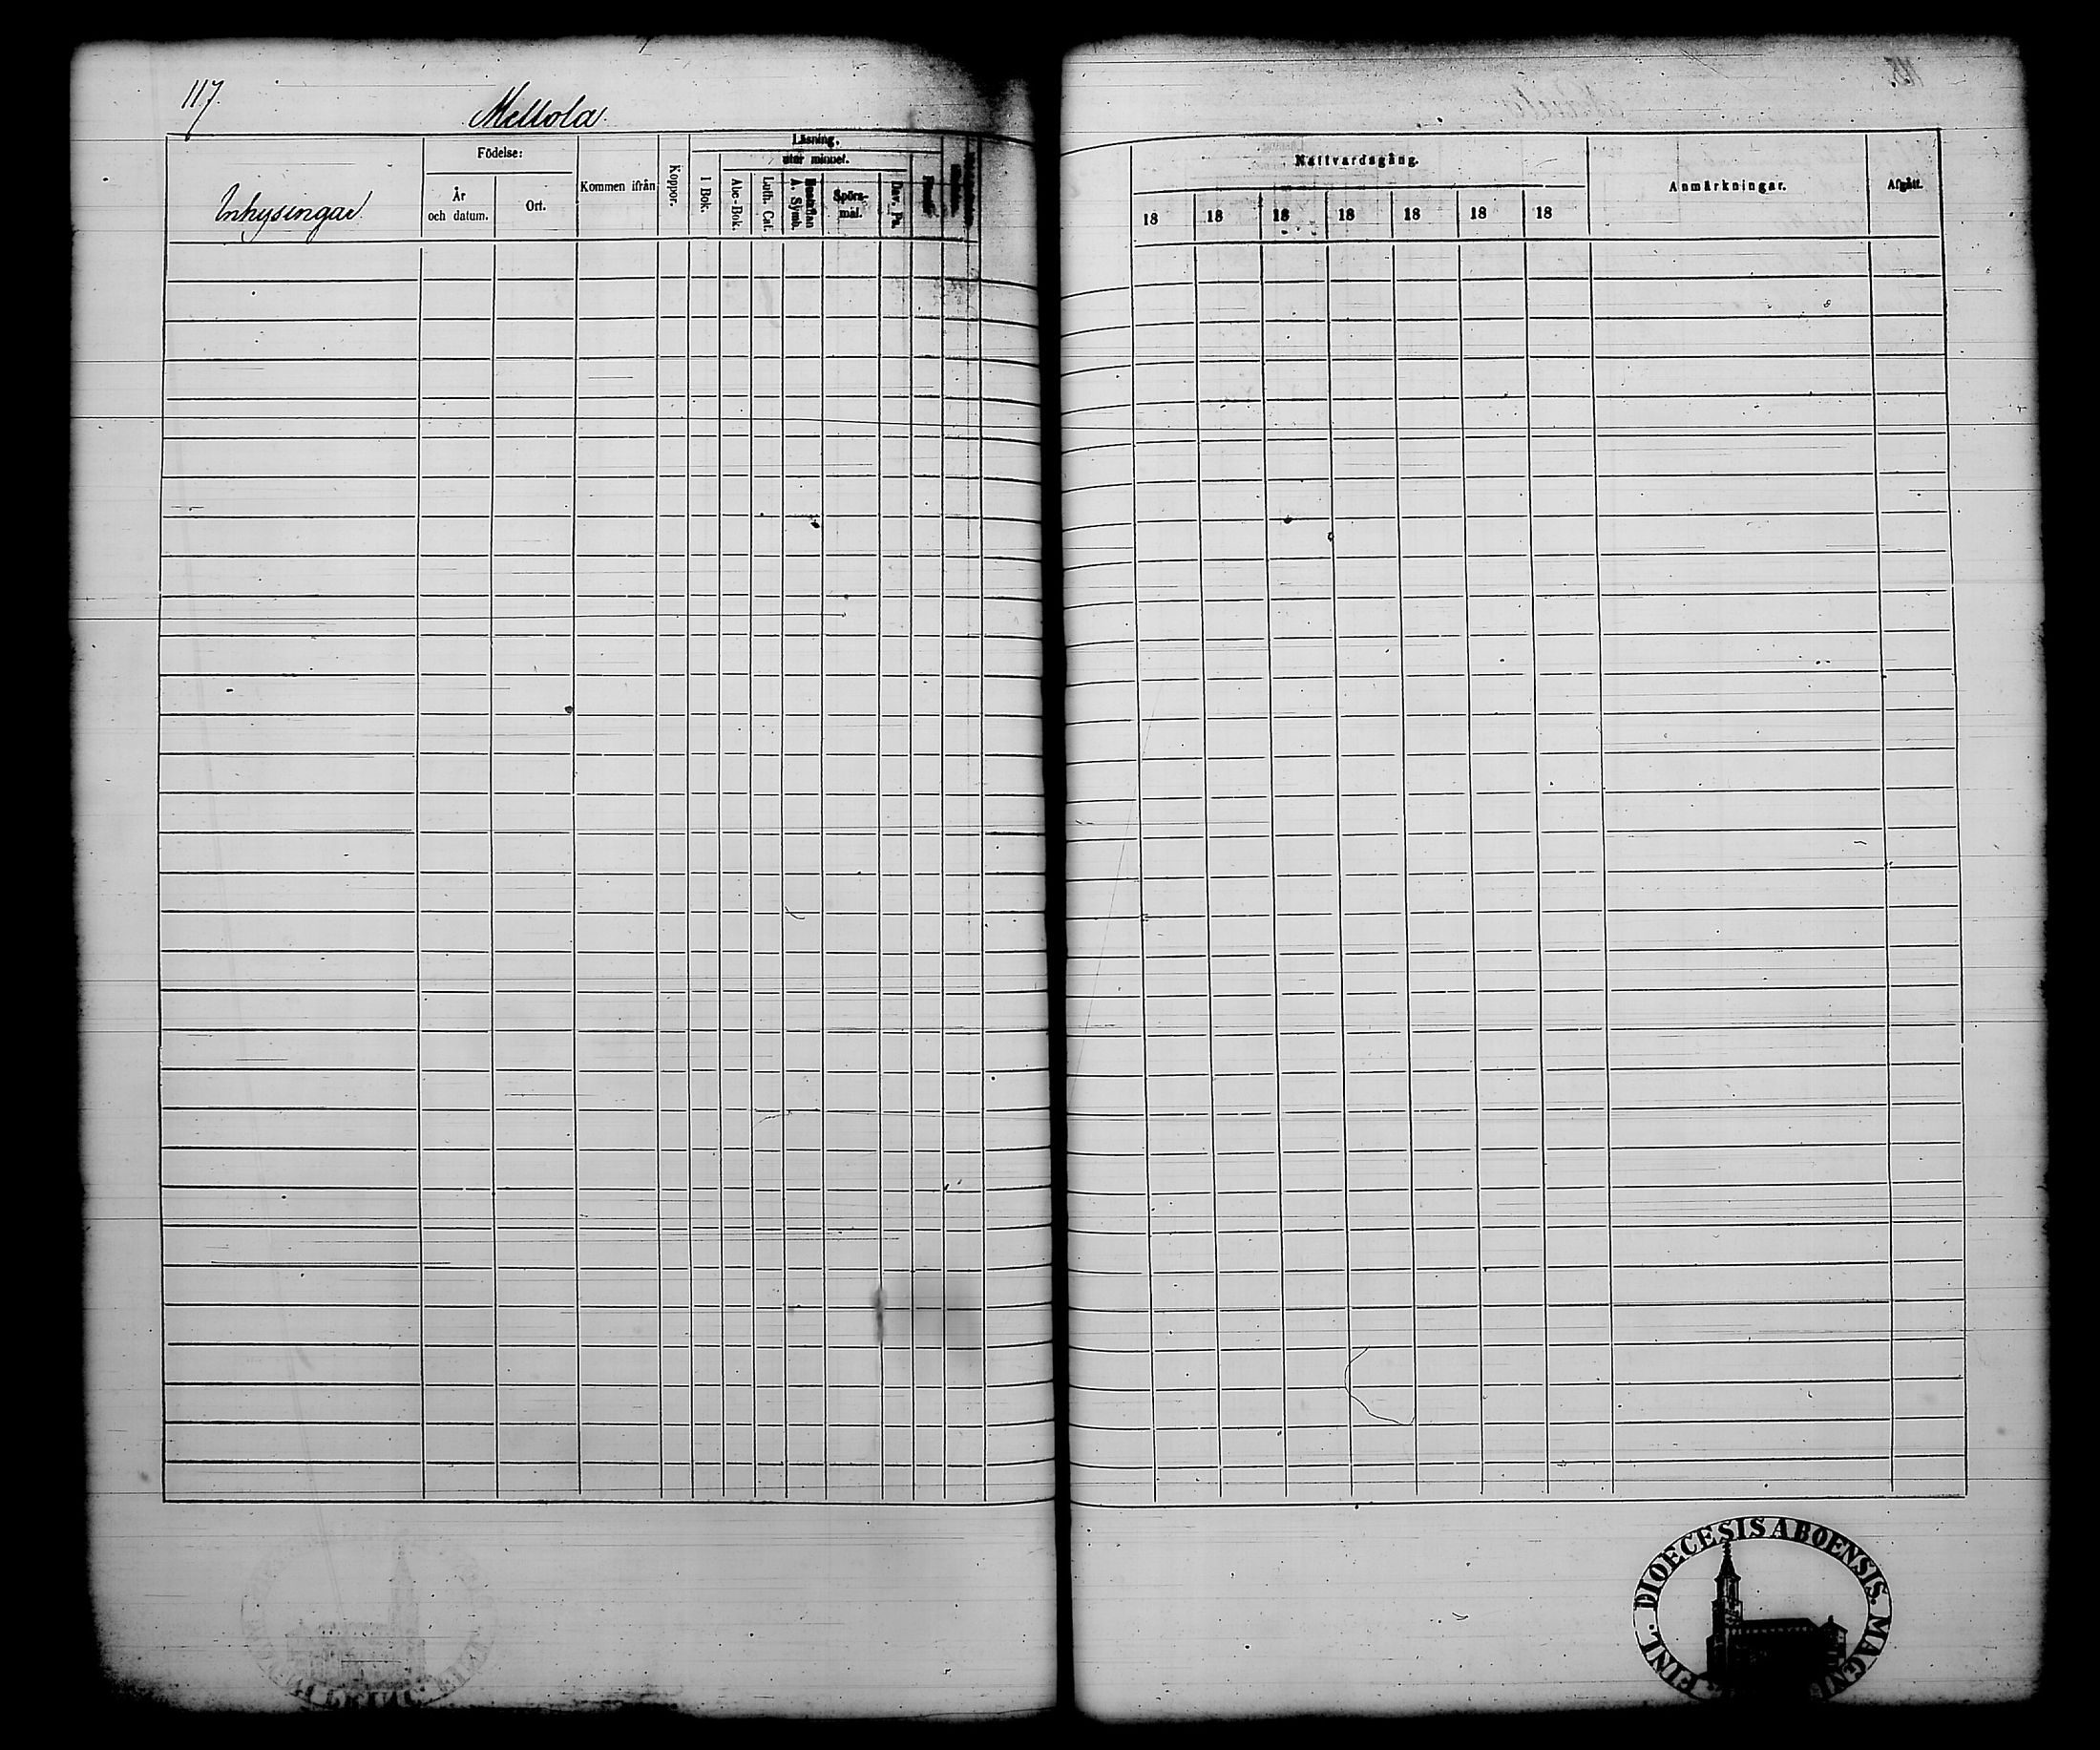 117.
Mellola.
Inhysingar
Födelse:
År
och datum.
Ort.
Kommen ifrån
Koppor.
Läsning,
utur minnet.
I Bok.
Abc-Bok.
Luth. Cat.
A. Symb.
Spörs-
mål.
Dav. Ps.
Nattvardsgång.
18 18 18 18 18 18 18
Anmärkningar.
Afgått.
DIOECESIS ABOENSIS. MAGN
FINL.